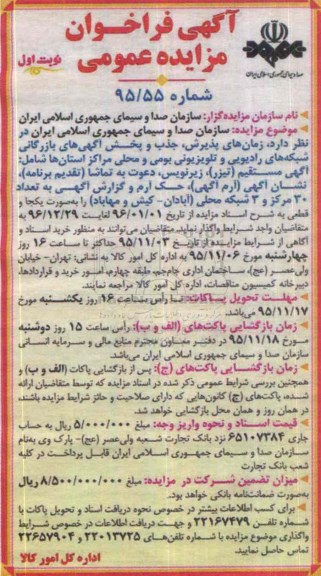 آگهی فراخوان
مزایده عمومی
نوبت اول
صدا و سیمای جمهوری اسلامی ایران
شماره ۹۵/۵۵
نام سازمان مزایده‌گزار: سازمان صدا و سیمای جمهوری اسلامی ایران
موضوع مزایده: سازمان صدا و سیمای جمهوری اسلامی ایران در
نظر دارد، زمان‌های پذیرش، جذب و پخش آگهی‌های بازرگانی
شبکه‌های رادیویی و تلویزیونی بومی و محلی مراکز استان‌ها شامل:
آگهی مستقیم (تیزر)، زیرنویس، دعوت به تماشا (تقدیم برنامه)،
نشان آگهی (آرم آگهی)، حک آرم و گزارش آگهی به تعداد
۳۰ مرکز و ۳ شبکه محلی (آبادان- کیش و مهاباد) را بصورت یکجا و
قطعی به شرح اسناد مزایده از تاریخ ۹۶/۰۱/۰۱ لغایت ۹۶/۱۲/۲۹ به
متقاضیان واجد شرایط واگذار نماید. متقاضیان می‌توانند به منظور خرید اسناد و
آگاهی از شرایط مزایده از تاریخ ۹۵/۱۱/۰۳ حداکثر تا ساعت ۱۶ روز
چهارشنبه مورخ ۹۵/۱۱/۰۶ به اداره کل امور کالا به نشانی: تهران- خیابان
ولی‌عصر (عج)، ساختمان اداری جام‌جم، طبقه چهارم، امور خرید و قراردادها،
دبیرخانه کمیسیون مناقصات، اداره کل امور کالا مراجعه نمایند.
مهلت تحویل پاکات: تا رأس ساعت ۱۶ روز یکشنبه مورخ
۹۵/۱۱/۱۷ می‌باشد.
زمان بازگشایی پاکت‌های (الف و ب): رأس ساعت ۱۵ روز دوشنبه
مورخ ۹۵/۱۱/۱۸ در دفتر معاون محترم منابع مالی و سرمایه انسانی
سازمان صدا و سیمای جمهوری اسلامی ایران می‌باشد.
زمان بازگشایی پاکت‌های (ج): پس از بازگشایی پاکات (الف و ب) و
همچنین بررسی شرایط عمومی ذکر شده در اسناد مزایده که توسط متقاضیان ارائه
شده، پاکت‌های (ج) کانون‌هایی که دارای صلاحیت و حائز شرایط مزایده باشند،
در همان روز و همان محل بازگشایی خواهد شد.
قیمت اسناد و نحوه واریز وجه: مبلغ ۵/۰۰۰/۰۰۰ ریال به حساب
جاری ۶۵۱۰۷۳۸۴ نزد بانک تجارت شعبه ولی‌عصر (عج)- پارک وی به‌نام
سازمان صدا و سیمای جمهوری اسلامی ایران قابل پرداخت در کلیه
شعب بانک تجارت
میزان تضمین شرکت در مزایده: مبلغ ۸/۵۰۰/۰۰۰/۰۰۰ ریال
به‌صورت ضمانت‌نامه بانکی خواهد بود.
برای کسب اطلاعات بیشتر در خصوص نحوه دریافت اسناد و تحویل پاکات با
شماره تلفن ۲۲۱۶۷۴۷۹ و جهت دریافت اطلاعات در خصوص شرایط
واگذاری موضوع مزایده با شماره تلفن‌های ۲۲۰۱۳۷۲۵ و ۲۲۶۵۷۹۰۴
تماس حاصل نمایید.
اداره کل امور کالا